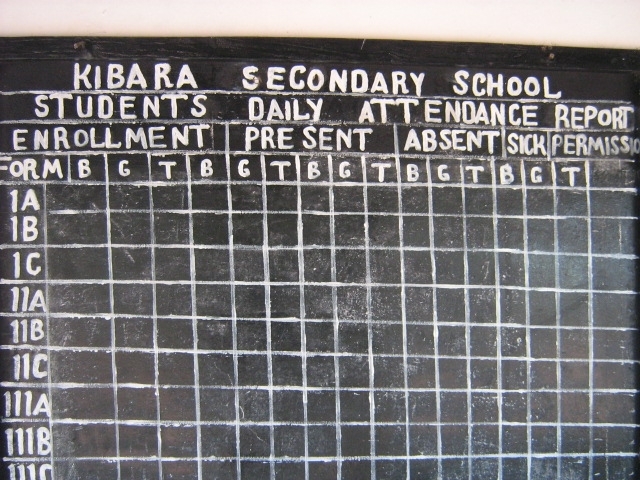 KIBARA SECONDARY SCHOOL
STUDENTS DAILY ATTENDANCE REPORT
ENROLLMENT PRESENT ABSENT SICK PERMISSIO
FORM B G T B G T B G T B G T B G T
1A
1B
1C
11A
11B
11C
111A
111B
111C